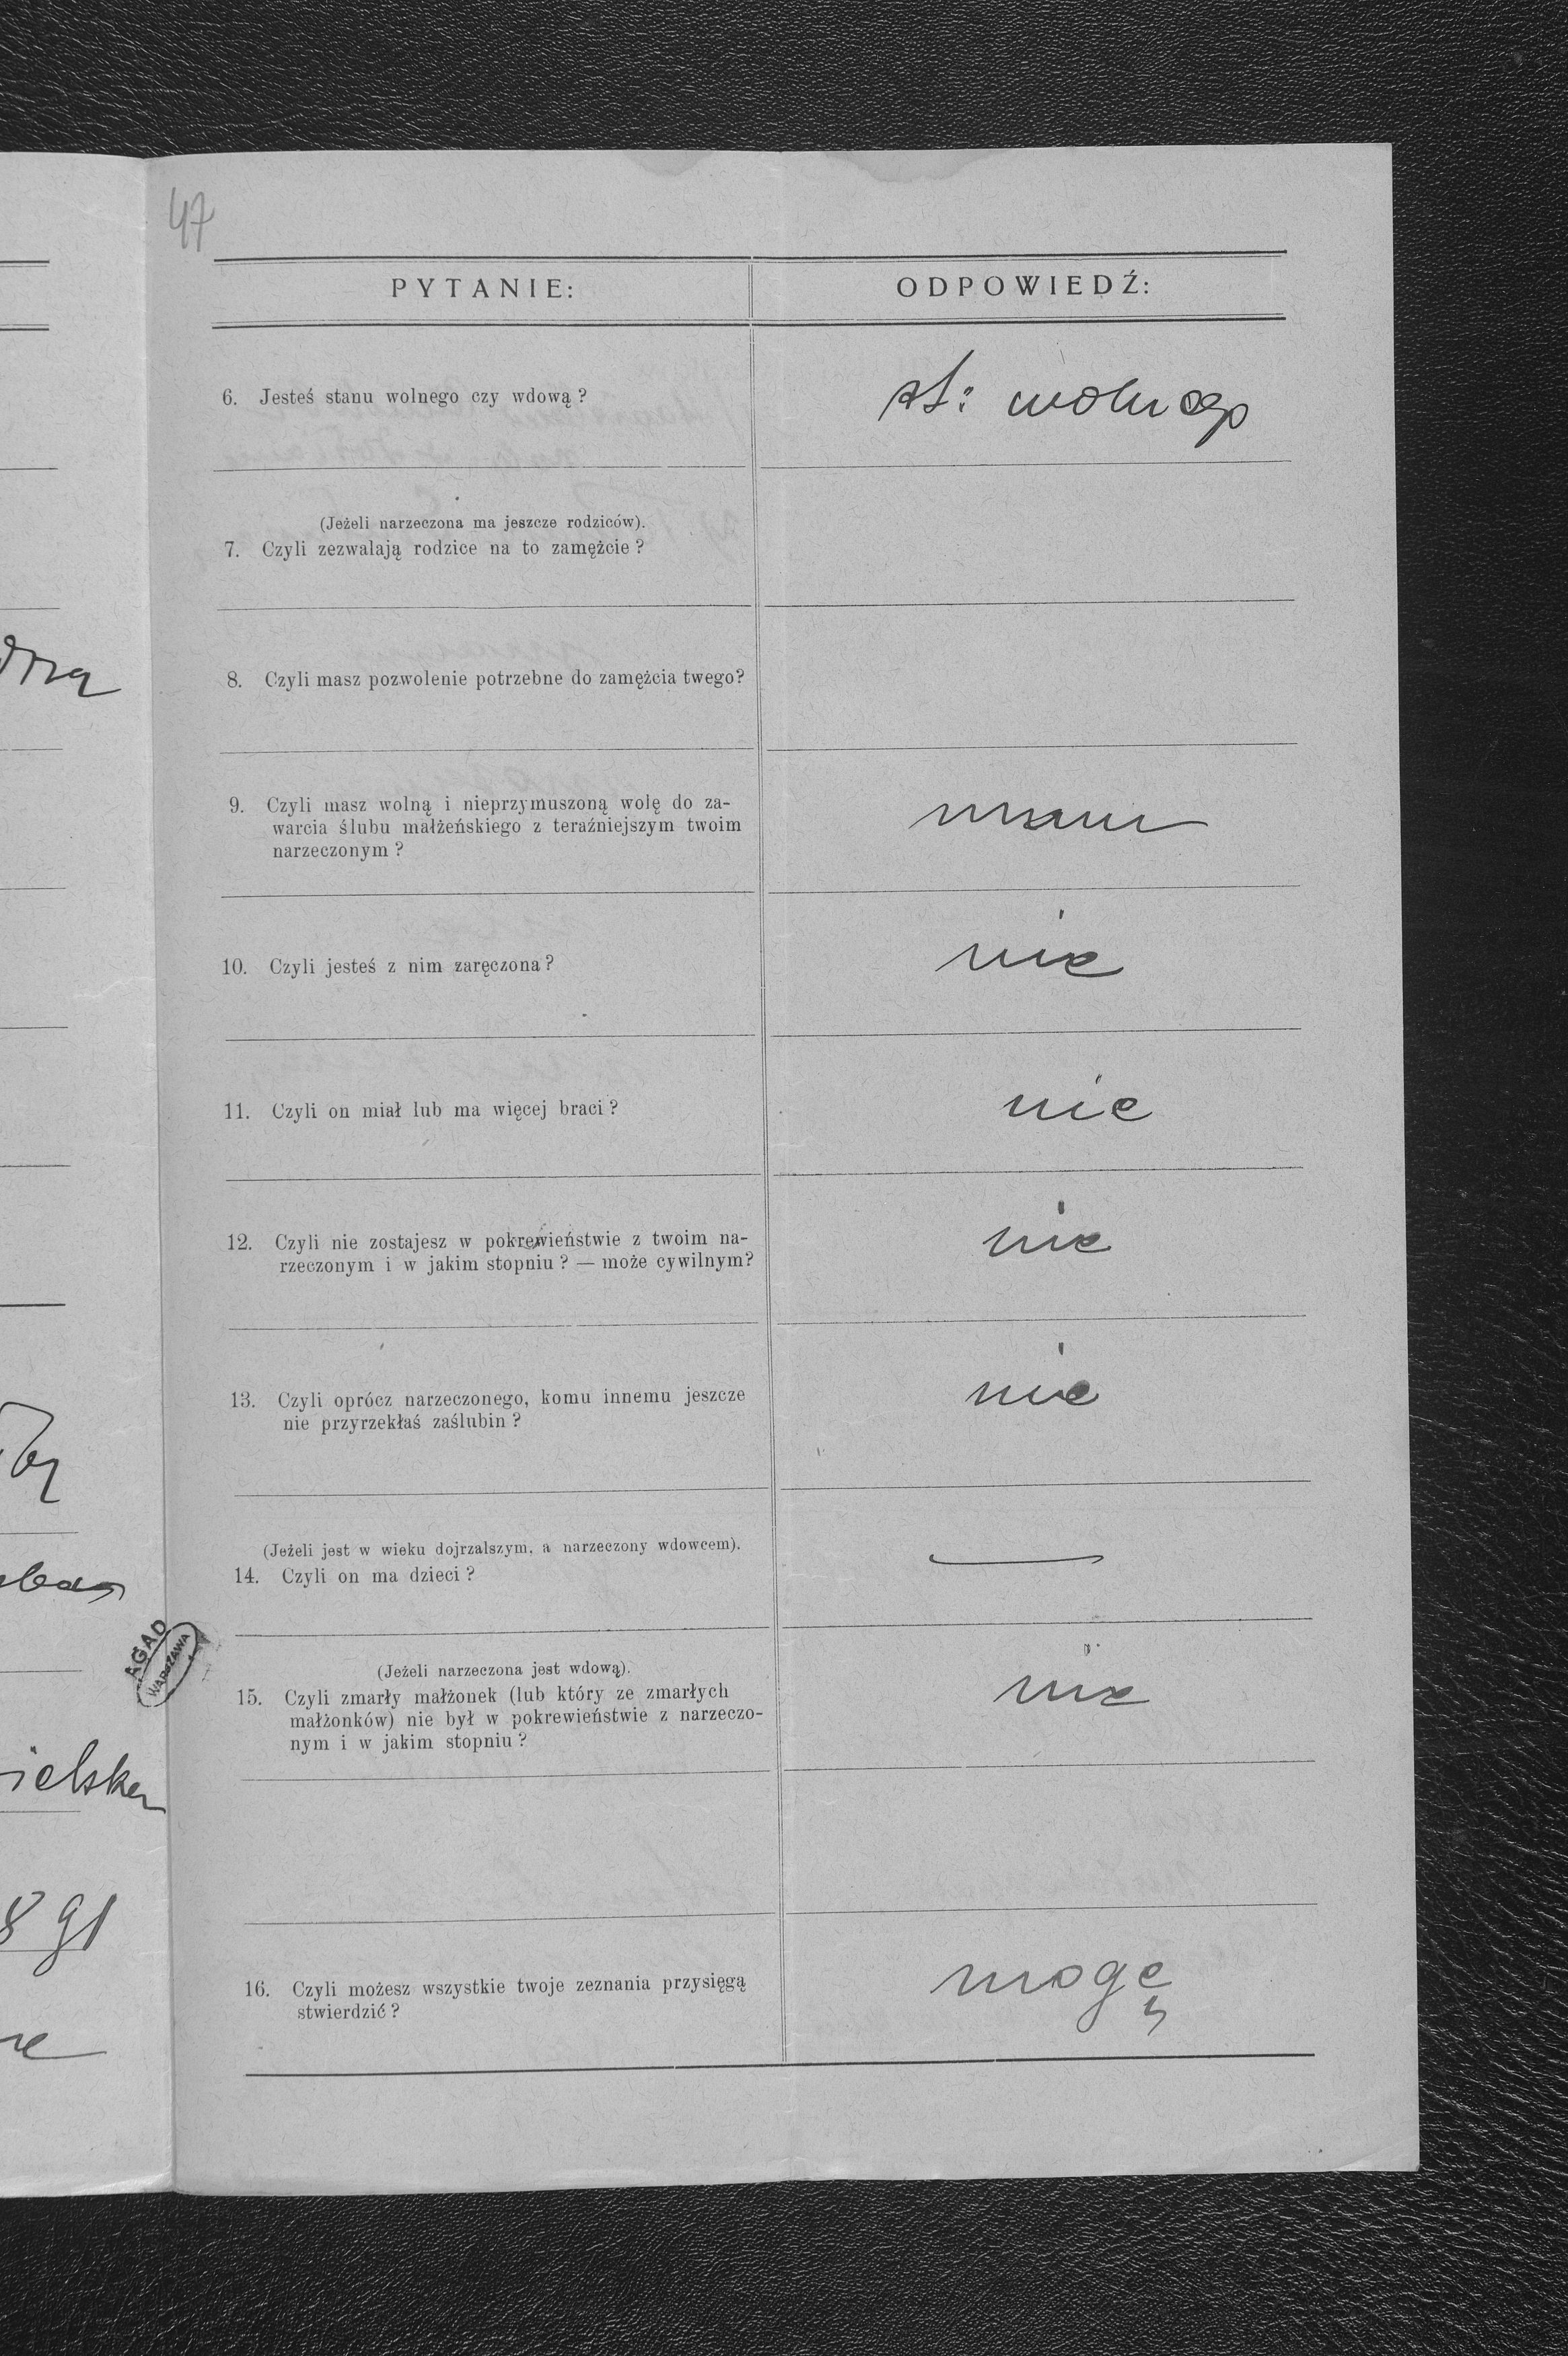 47
PYTANIE:
ODPOWIEDŹ:
6. Jesteś stanu wolnego czy wdową?
st: wolnego
(Jeżeli narzeczona ma jeszcze rodziców).
7. Czyli zezwalają rodzice na to zamęźcie?
8. Czyli masz pozwolenie potrzebne do zamęźcia twego?
9. Czyli masz wolną i nieprzymuszoną wolę do za-
warcia ślubu małżeńskiego z teraźniejszym twoim
narzeczonym?
mam
10. Czyli jesteś z nim zaręczona?
nie
11. Czyli on miał lub ma więcej braci?
nie
12. Czyli nie zostajesz w pokrewieństwie z twoim na-
rzeczonym i w jakim stopniu? — może cywilnym?
nie
13. Czyli oprócz narzeczonego, komu innemu jeszcze
nie przyrzekłaś zaślubin?
nie
(Jeżeli jest w wieku dojrzalszym, a narzeczony wdowcem).
14. Czyli on ma dzieci?
—
(Jeżeli narzeczona jest wdową).
15. Czyli zmarły małżonek (lub który ze zmarłych
małżonków) nie był w pokrewieństwie z narzeczo-
nym i w jakim stopniu?
nie
16. Czyli możesz wszystkie twoje zeznania przysięgą
stwierdzić?
mogę
AGAD
WARSZAWA